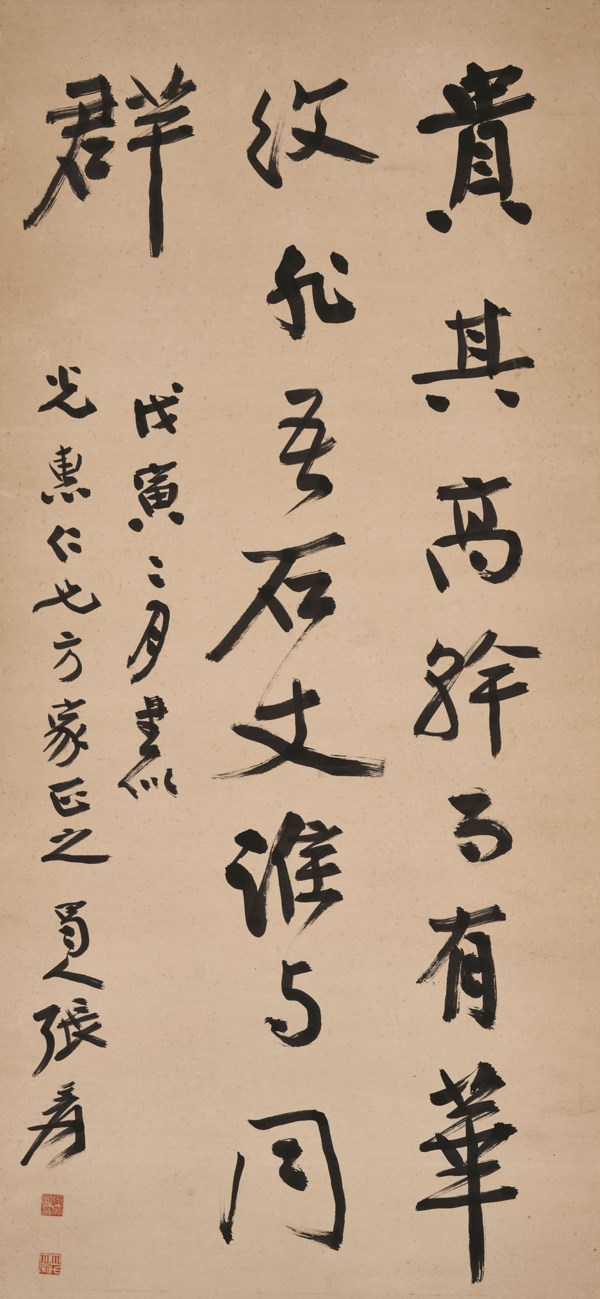 貴其高幹而有華
紋非吾石丈誰与同
群
戊寅二月書似
光惠仁世方家正之 蜀人張爰